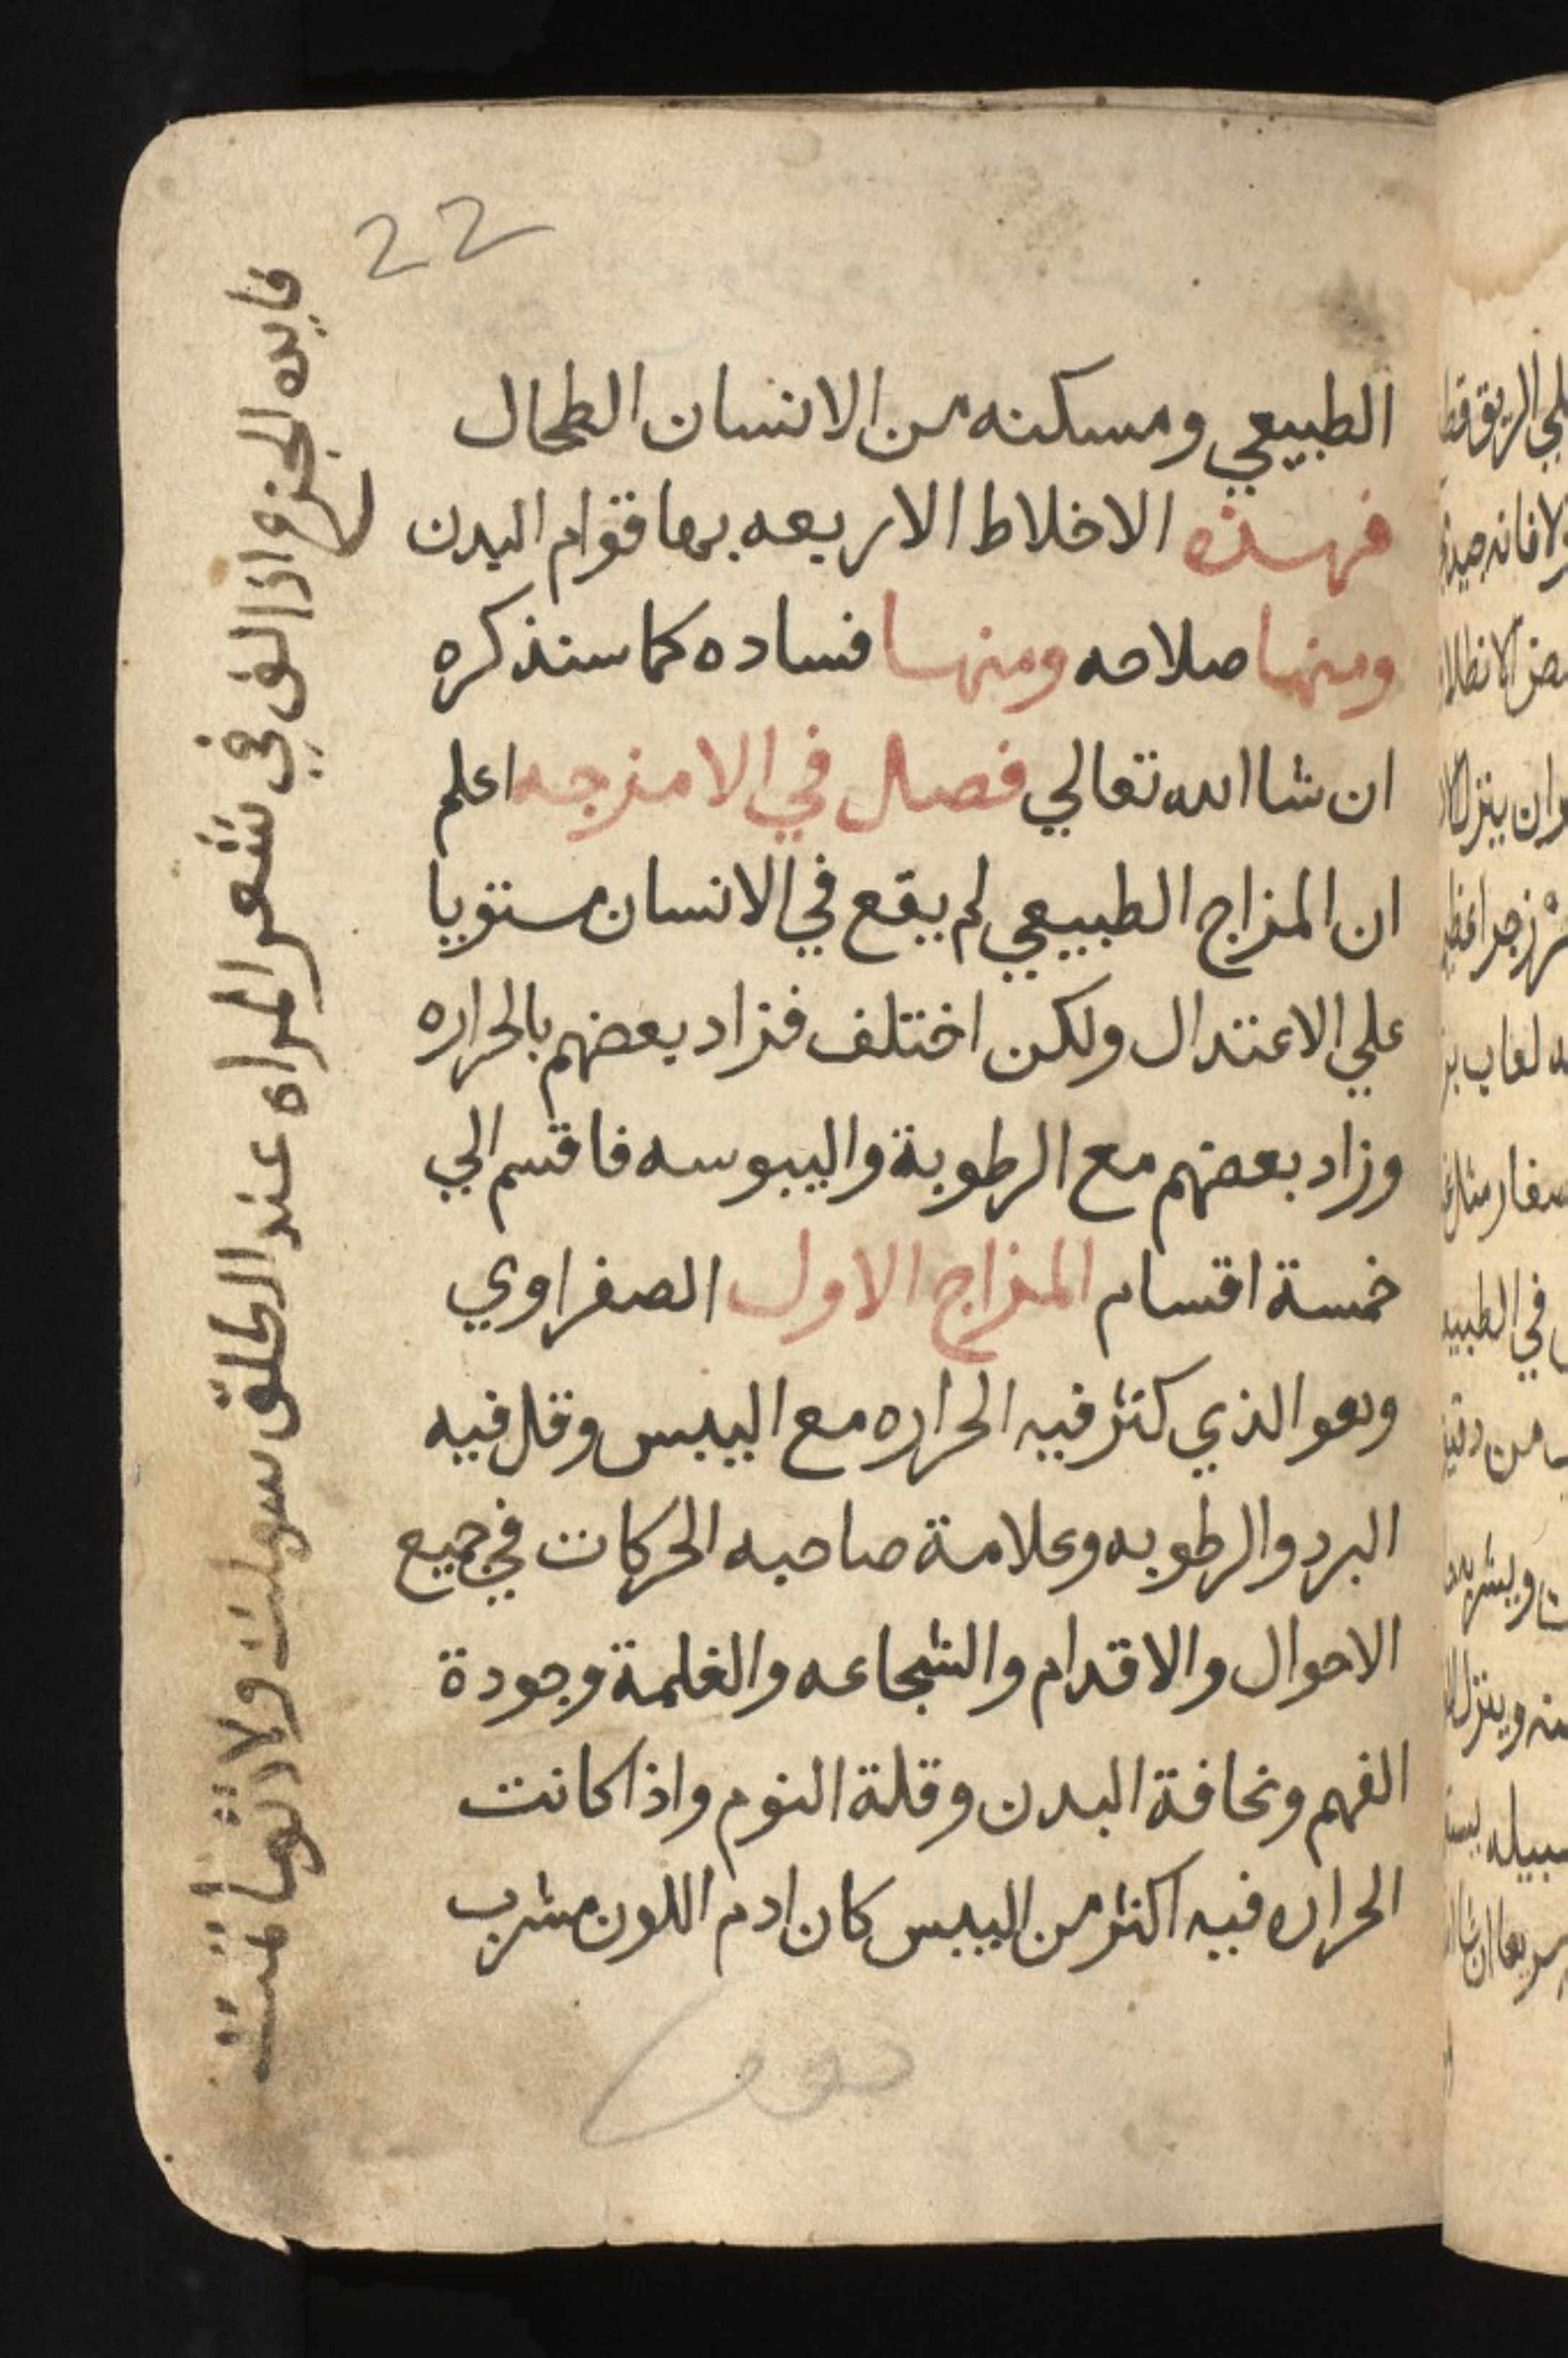 22
الطبيعي ومسكنه من الانسان الطحال
فهذه الاخلاط الاربعه بها قوام البدن
ومنها صلاحه ومنها فساده كما سنذكره
ان شا الله تعالي فصل في الامزجه اعلم
ان المزاج الطبيعي لم يقع في الانسان مستويا
علي الاعتدال ولكن اختلف فزاد بعضهم بالحراره
وزاد بعضهم مع الرطوبة واليبوسه فاقسم الي
خمسة اقسام المزاج الاول الصفراوي
وهو الذي كثر فيه الحراره مع اليبس وقل فيه
البرد والرطوبه وعلامة صاحبه الحركات في جميع
الاحوال والاقدام والشجاعه والغلمة وجودة
الفهم ونحافة البدن وقلة النوم واذا كانت
الحراره فيه اكثر من اليبس كان ادم اللون مشرب
فايده الجزع اذا لف في شعر المراه عند الطلق سهلت ولادتها تمت